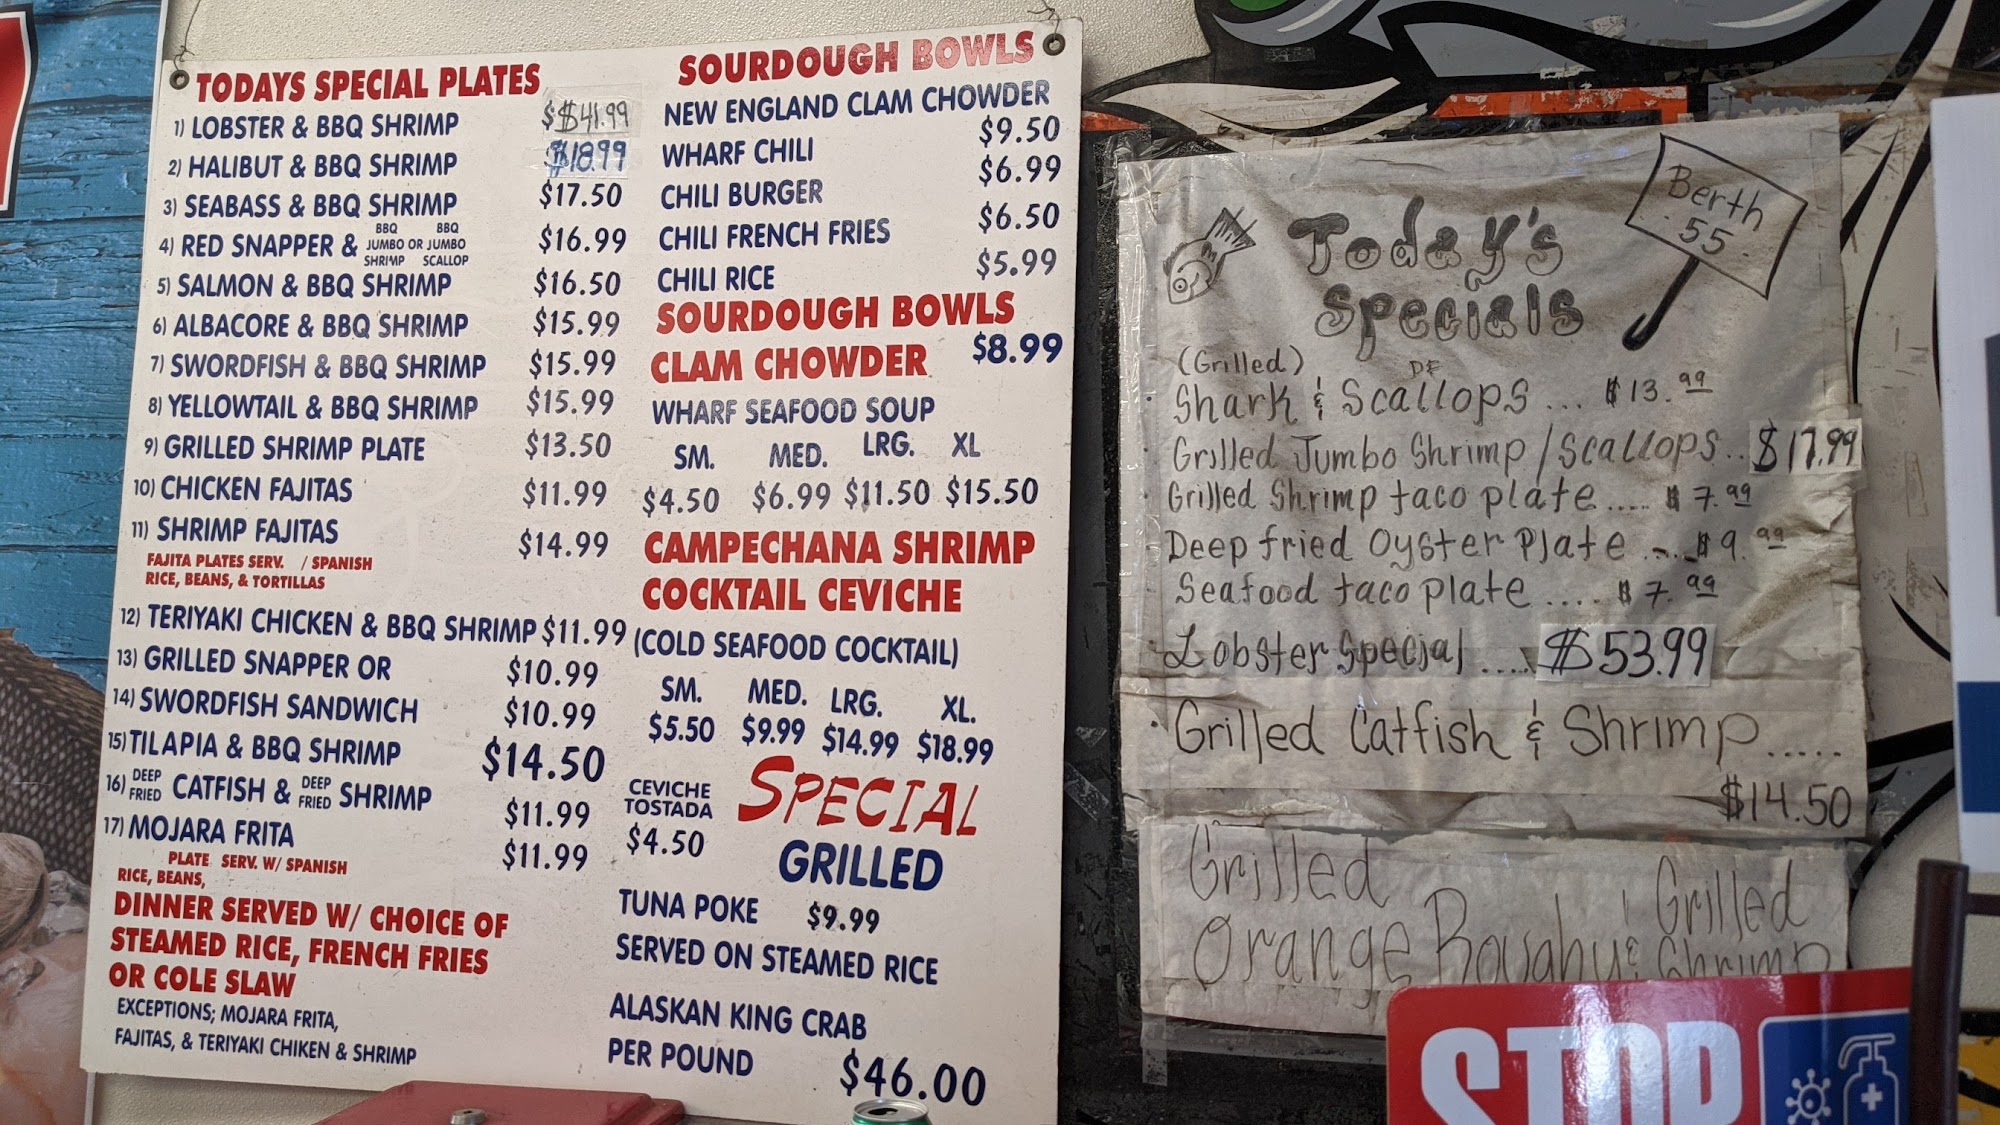 TODAYS SPECIAL PLATES
1) LOBSTER & BBQ SHRIMP $$41.99
2) HALIBUT & BBQ SHRIMP $18.99
3) SEABASS & BBQ SHRIMP $17.50
4) RED SNAPPER & BBQ JUMBO SHRIMP OR BBQ JUMBO SCALLOP $16.99
5) SALMON & BBQ SHRIMP $16.50
6) ALBACORE & BBQ SHRIMP $15.99
7) SWORDFISH & BBQ SHRIMP $15.99
8) YELLOWTAIL & BBQ SHRIMP $15.99
9) GRILLED SHRIMP PLATE $13.50
10) CHICKEN FAJITAS $11.99
11) SHRIMP FAJITAS $14.99
FAJITA PLATES SERV. / SPANISH
RICE, BEANS, & TORTILLAS
12) TERIYAKI CHICKEN & BBQ SHRIMP $11.99
13) GRILLED SNAPPER OR $10.99
14) SWORDFISH SANDWICH $10.99
15) TILAPIA & BBQ SHRIMP $14.50
16) DEEP FRIED CATFISH & DEEP FRIED SHRIMP $11.99
17) MOJARA FRITA $11.99
PLATE SERV. W/ SPANISH
RICE, BEANS,
DINNER SERVED W/ CHOICE OF
STEAMED RICE, FRENCH FRIES
OR COLE SLAW
EXCEPTIONS; MOJARA FRITA,
FAJITAS, & TERIYAKI CHIKEN & SHRIMP
SOURDOUGH BOWLS
NEW ENGLAND CLAM CHOWDER
$9.50
WHARF CHILI
$6.99
CHILI BURGER
$6.50
CHILI FRENCH FRIES
$5.99
CHILI RICE
SOURDOUGH BOWLS
CLAM CHOWDER $8.99
WHARF SEAFOOD SOUP
SM. MED. LRG. XL
$4.50 $6.99 $11.50 $15.50
CAMPECHANA SHRIMP
COCKTAIL CEVICHE
(COLD SEAFOOD COCKTAIL)
SM. MED. LRG. XL.
$5.50 $9.99 $14.99 $18.99
CEVICHE
TOSTADA
$4.50
SPECIAL
GRILLED
TUNA POKE $9.99
SERVED ON STEAMED RICE
ALASKAN KING CRAB
PER POUND $46.00
Berth
55
Today's
Specials
(Grilled) DF
Shark & Scallops ... $13.99
Grilled Jumbo Shrimp/Scallops.. $17.99
Grilled Shrimp taco plate ..... $7.99
Deep fried Oyster Plate .... $9.99
Seafood taco plate .... $7.99
Lobster Special .... $53.99
Grilled Catfish & Shrimp.....
$14.50
Grilled
Orange Roughy & Grilled
Shrimp
STOP